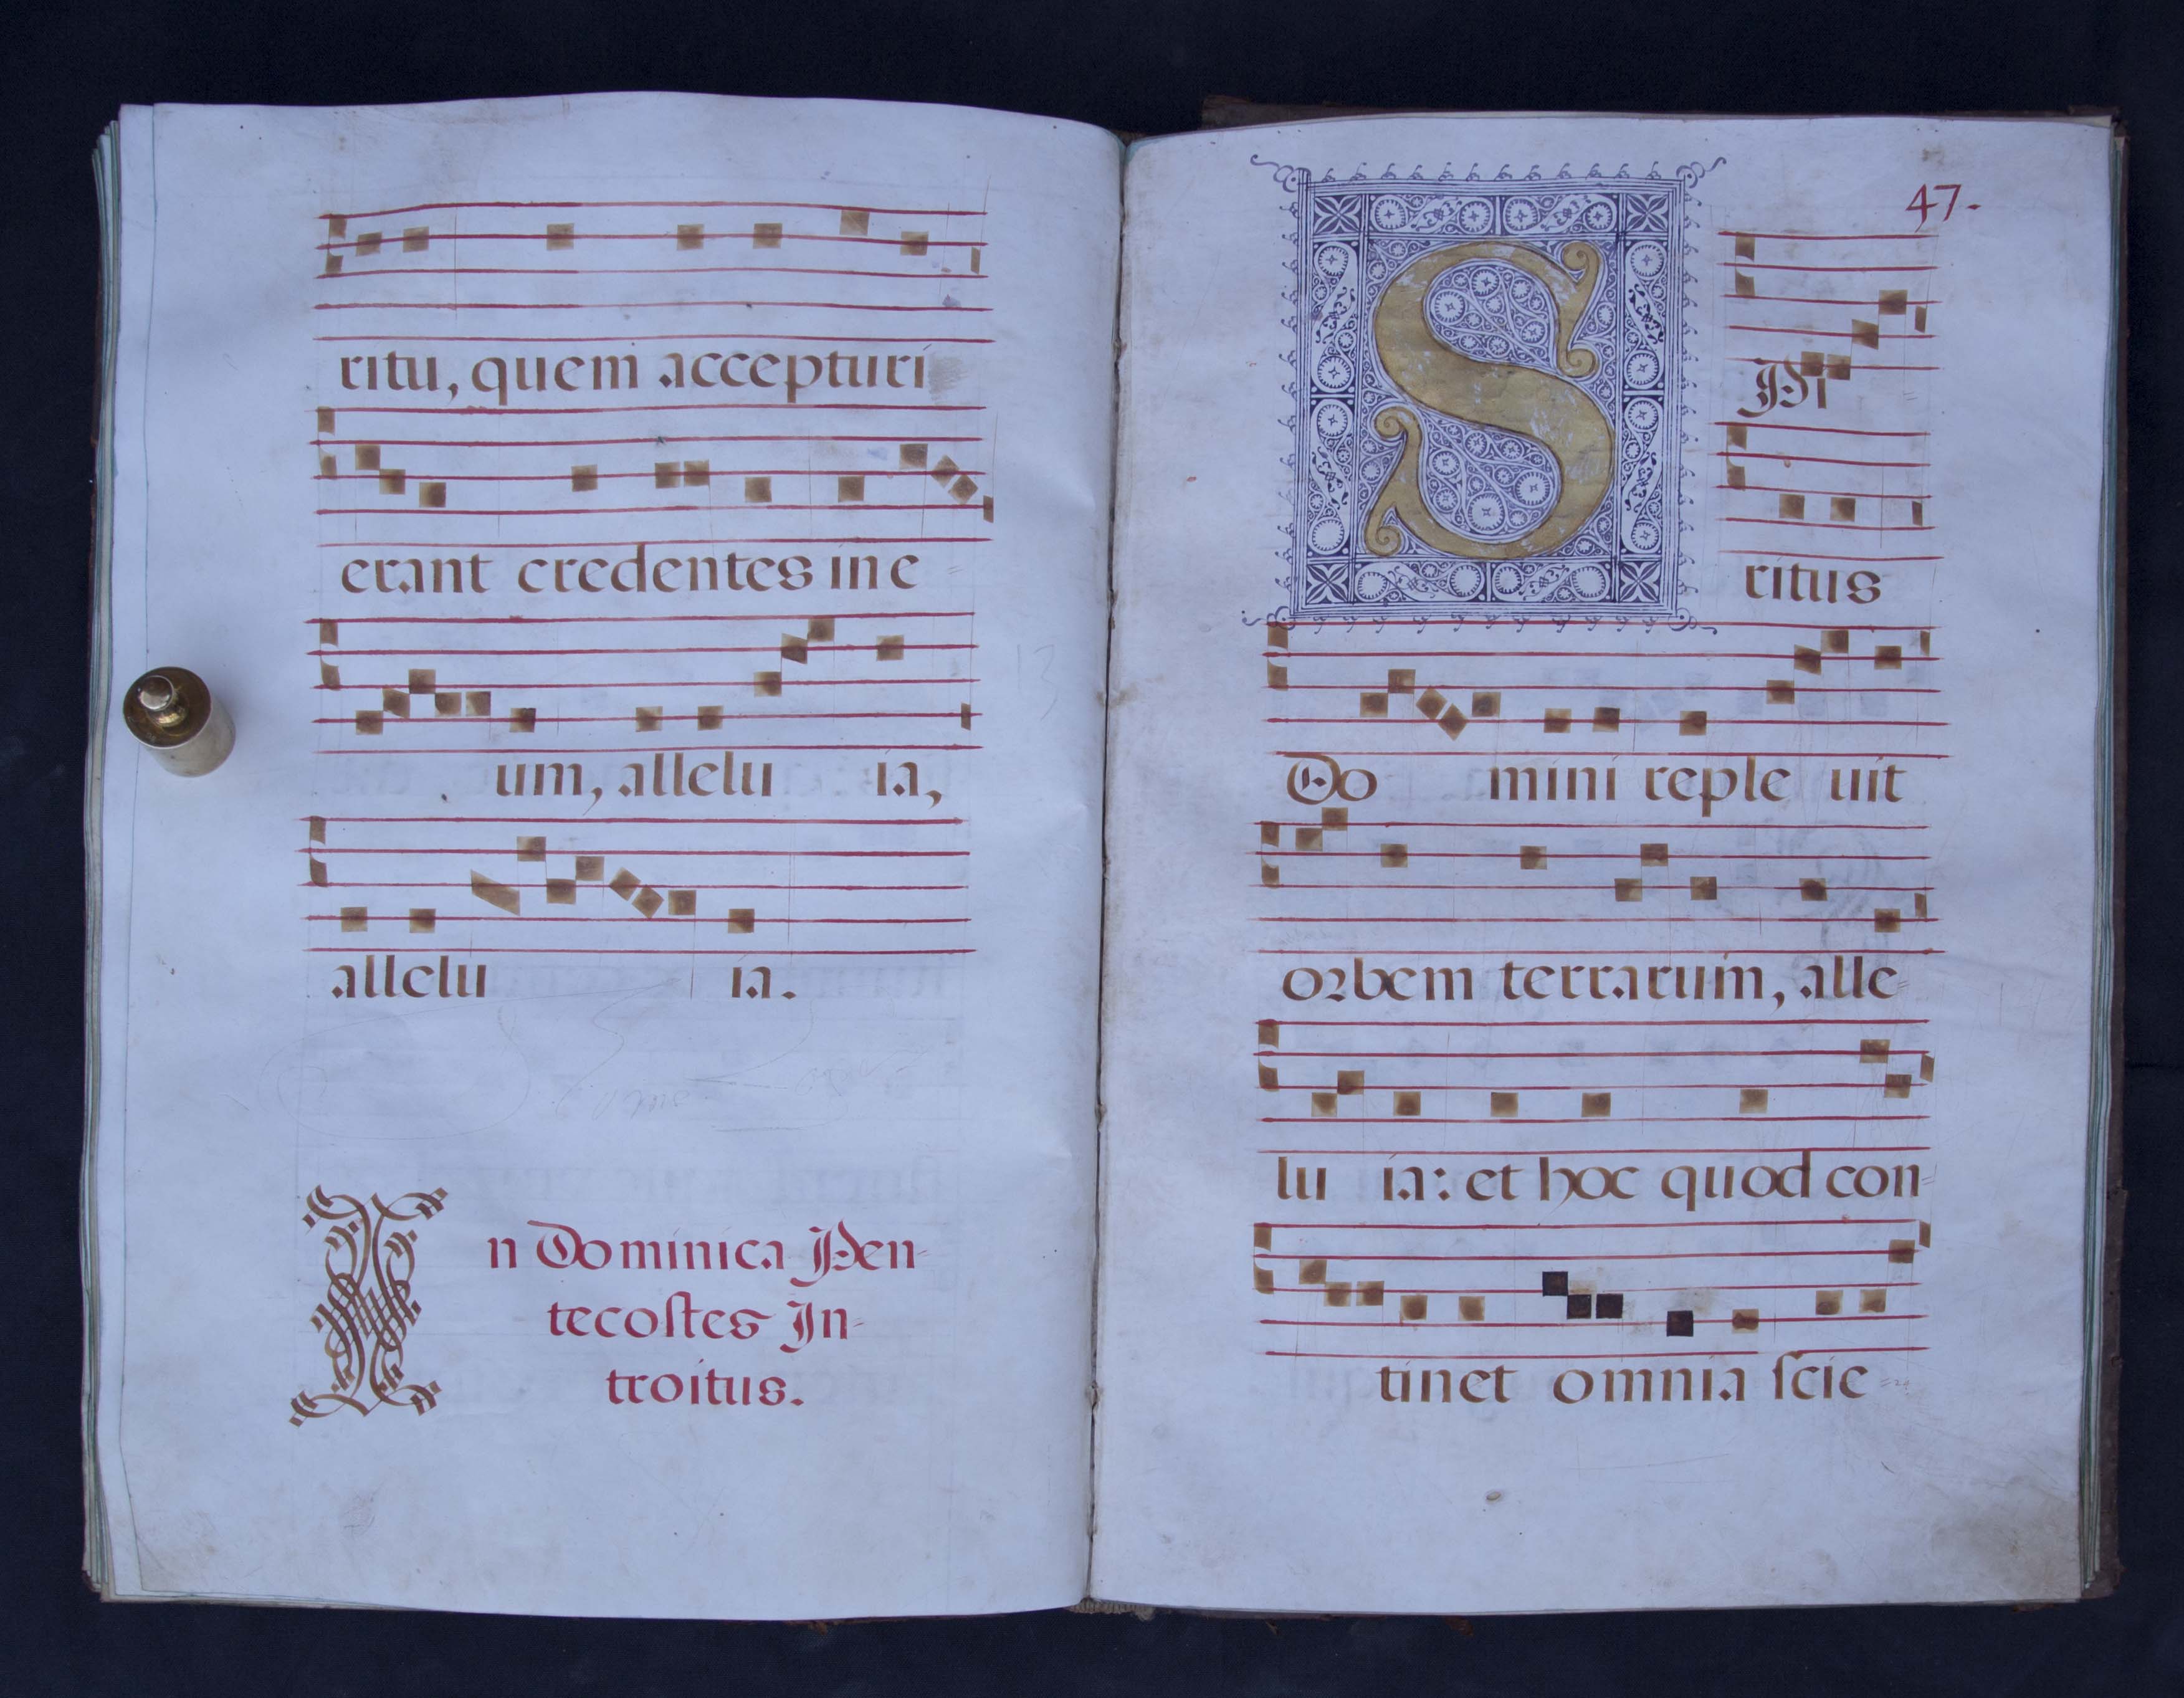 ritu, quem accepturi
erant credentes in e-
um, allelu ia,
allelu ia.
In Dominica Pen-
tecostes In-
troitus.
47.
SPi
ritus
Do mini reple uit
orbem terrarum, alle-
lu ia: et hoc quod con-
tinet omnia scie-